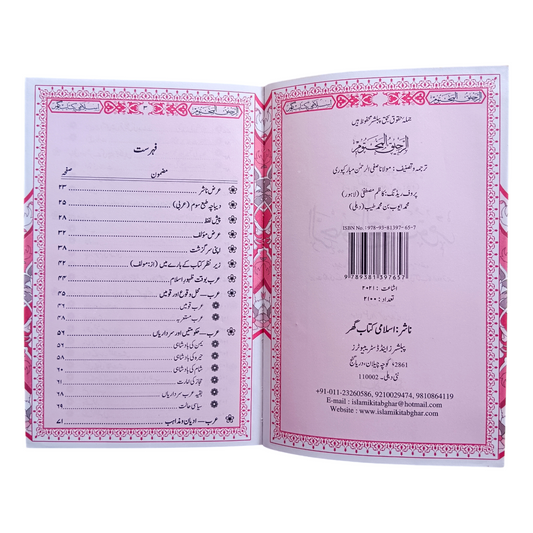 جملہ حقوق بحق پبلشر محفوظ ہیں
الرحیق المختوم
ترجمہ و تصنیف : مولانا صفی الرحمٰن مبارکپوری
پروف ریڈنگ : کاظم مصطفیٰ (لاہور)
محمد ایوب بن محمد طیب (دہلی)
ISBN No : 978-93-81397-65-7
9 789381 397657
اشاعت : ۲۰۲۱
تعداد : ۲۱۰۰
ناشر : اسلامی کتاب گھر
پبلشرز اینڈ ڈسٹری بیوٹرز
2861، کوچہ چیلان، دریا گنج
نئی دہلی۔ 110002
+91-011-23260586, 9210029474, 9810864119
E-mail : islamikitabghar@hotmail.com
Website : www.islamikitabghar.com
الرحیق المختوم
۳
اسلامی کتاب گھر
فہرست
مضمون صفحہ
عرض ناشر ۲۳
دیباچہ طبع سوم (عربی) ۲۵
پیش لفظ ۲۸
عرض مؤلف ۳۲
اپنی سرگزشت ۳۸
زیر نظر کتاب کے بارے میں (از: مؤلف) ۴۲
عرب بوقت ظہور اسلام ۴۴
عرب – محل وقوع اور قومیں ۴۵
عرب قومیں ۴۶
عرب مستعربہ ۴۸
عرب – حکومتیں اور سرداریاں ۵۶
یمن کی بادشاہی ۵۶
حیرہ کی بادشاہی ۵۸
شام کی بادشاہی ۶۰
حجاز کی امارت ۶۱
بقیہ عرب سرداریاں ۶۸
سیاسی حالت ۶۹
عرب – ادیان و مذاہب ۷۱